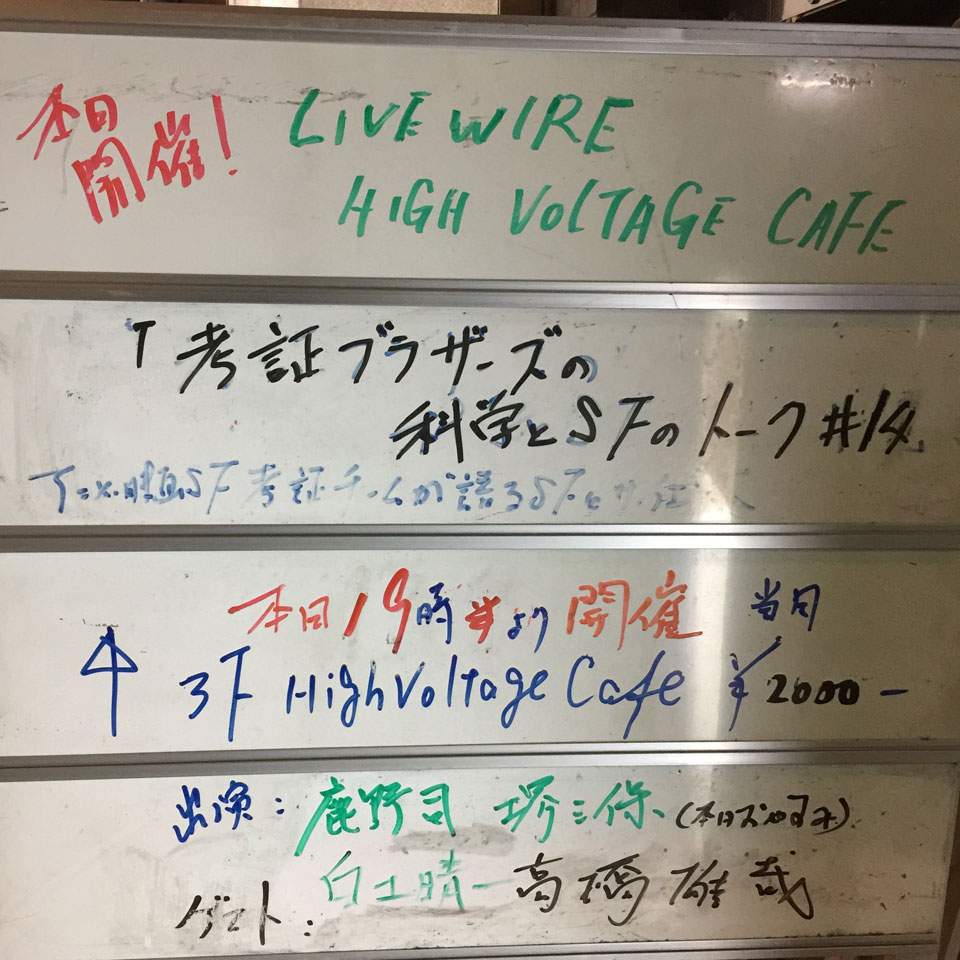 本日
開催!
LIVE WIRE
HIGH VOLTAGE CAFE
「考証ブラザーズの
科学とSFのトーク#14」
アニメ・映画SF考証チームが語るSFと
本日19時半より開催 当日
↑ 3F High Voltage Cafe ¥2000-
出演: 鹿野司 堺三保 (本日おやすみ)
白土晴一 高橋雄哉
ゲスト: